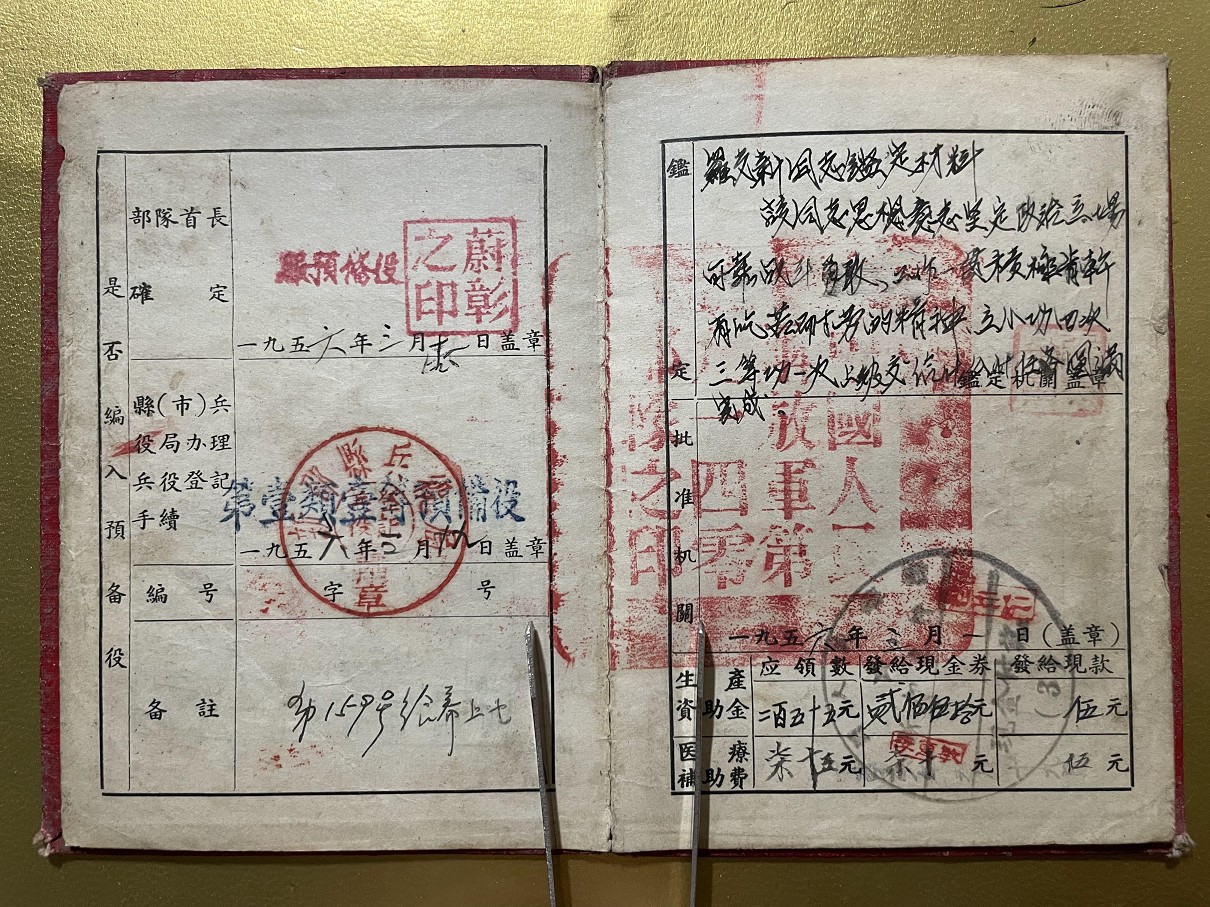 是否編入預备役
部隊首長
確定
服預備役
蔚彰之印
一九五六年三月 日盖章
縣(市)兵
役局办理
兵役登記
手續
第壹類壹等預備役
一九五六年 月 日盖章
編号
字 号
备註
第159号给养上士
鑑定
羅文新同志鑑定材料
該同志思想意志坚定政治立場
可靠战斗勇敢、工作一贯积極肯幹
有吃苦耐劳的精神、立小功四次
三等功一次上级交给 任务圓满
完成.
鑑定机關盖章
批准机關
中國人民
解放軍第
一四零
部隊之印
一九五六年三月一日(盖章)
生産資助金
应領數
發給現金券
發給現款
二百五十五元
贰佰伍拾元
伍元
医療補助費
柒十五元
柒十元
伍元